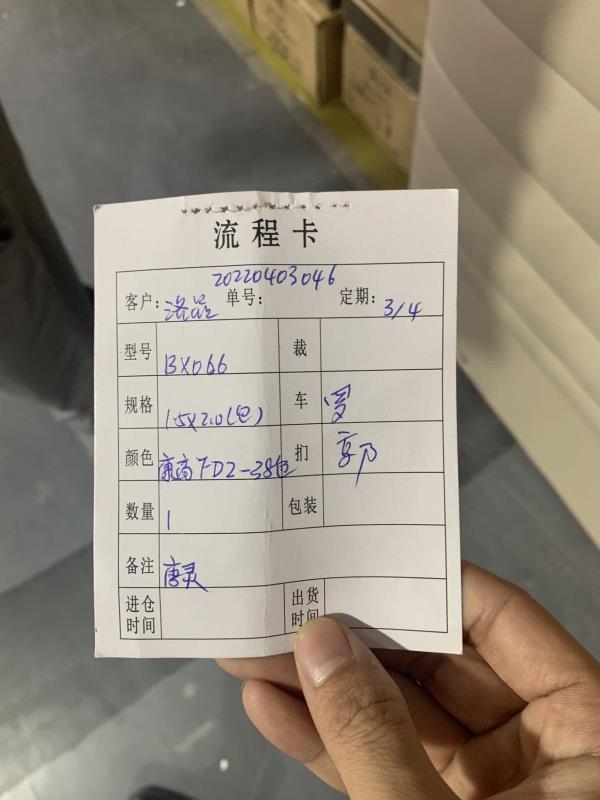 流程卡
20220403046
客户: 洛品 单号: 定期: 3/4
型号 BX066 裁
规格 1.5X2.0(包) 车
颜色 康高 TD2-38色 扪
数量 1 包装
备注 唐灵
进仓时间 出货时间